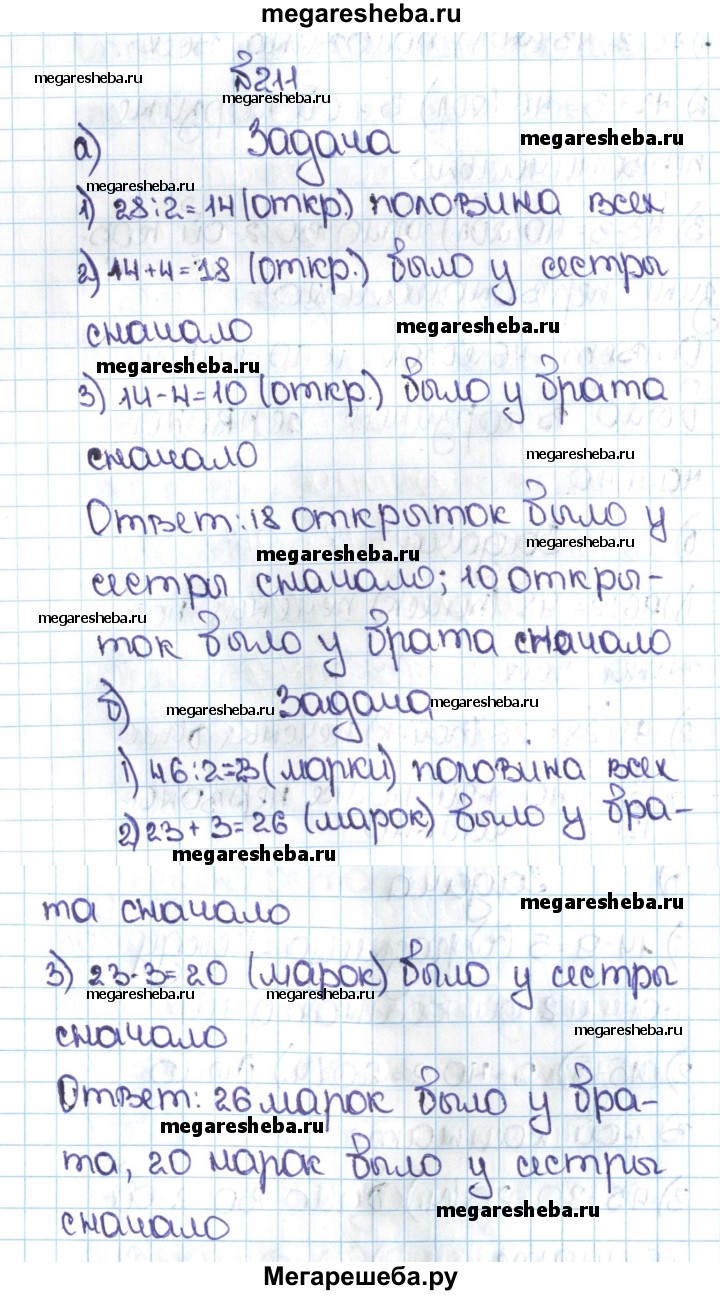 megaresheba.ru
megaresheba.ru
№211
megaresheba.ru
а) Задача megaresheba.ru
megaresheba.ru
1) 28:2=14 (откр.) половина всех
2) 14+4=18 (откр.) было у сестры
сначало megaresheba.ru
megaresheba.ru
3) 14-4=10 (откр.) было у брата
сначало megaresheba.ru
Ответ: 18 открыток было у
megaresheba.ru
megaresheba.ru
сестры сначало; 10 откры-
megaresheba.ru
ток было у брата сначало
б) megaresheba.ru Задача megaresheba.ru
1) 46:2=23 (марки) половина всех
2) 23+3=26 (марок) было у бра-
megaresheba.ru
та сначало megaresheba.ru
3) 23-3=20 (марок) было у сестры
megaresheba.ru megaresheba.ru
сначало megaresheba.ru
Ответ: 26 марок было у бра-
megaresheba.ru
та, 20 марок было у сестры
сначало megaresheba.ru
Мегарешеба.ру